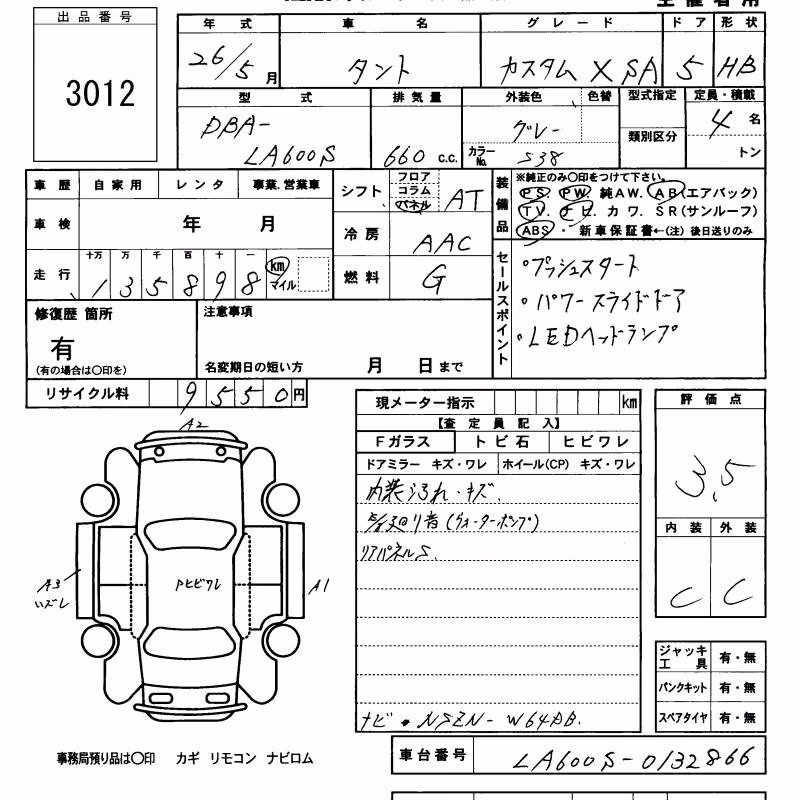 出品番号
3012
年式 車名 グレード ドア 形状
26/5月 タント カスタム X SA 5 HB
型式 排気量 外装色 色替 型式指定 定員・積載
DBA- グレー 4名
LA600S 660 c.c. カラーNo. S38 類別区分 トン
車歴 自家用 レンタ 事業.営業車
車検 年 月
走行 十万 万 千 百 十 一 km マイル
135898
シフト フロア コラム パネル AT
冷房 AAC
燃料 G
装備品
※純正のみ〇印をつけて下さい。
PS. PW. 純AW. AB(エアバック)
TV. ナビ. カワ. SR(サンルーフ)
ABS・新車保証書←(注) 後日送りのみ
セールスポイント
・プッシュスタート
・パワースライドドア
・LEDヘッドランプ
修復歴 箇所
有
(有の場合は〇印を)
注意事項
名変期日の短い方 月 日まで
リサイクル料 9550円
現メーター指示 km
【査定員記入】
Fガラス トビ石 ヒビワレ
ドアミラー キズ・ワレ ホイール(CP) キズ・ワレ
内装汚れ・キズ.
廻り音(ウォーターポンプ)
リアパネルS.
ナビ・NSZN-W64DB.
評価点
3.5
内装 外装
C C
A2
A3
A1
ヒビワレ
ジャッキ工具 有・無
パンクキット 有・無
スペアタイヤ 有・無
事務局預り品は〇印 カギ リモコン ナビロム
車台番号 LA600S-0132866